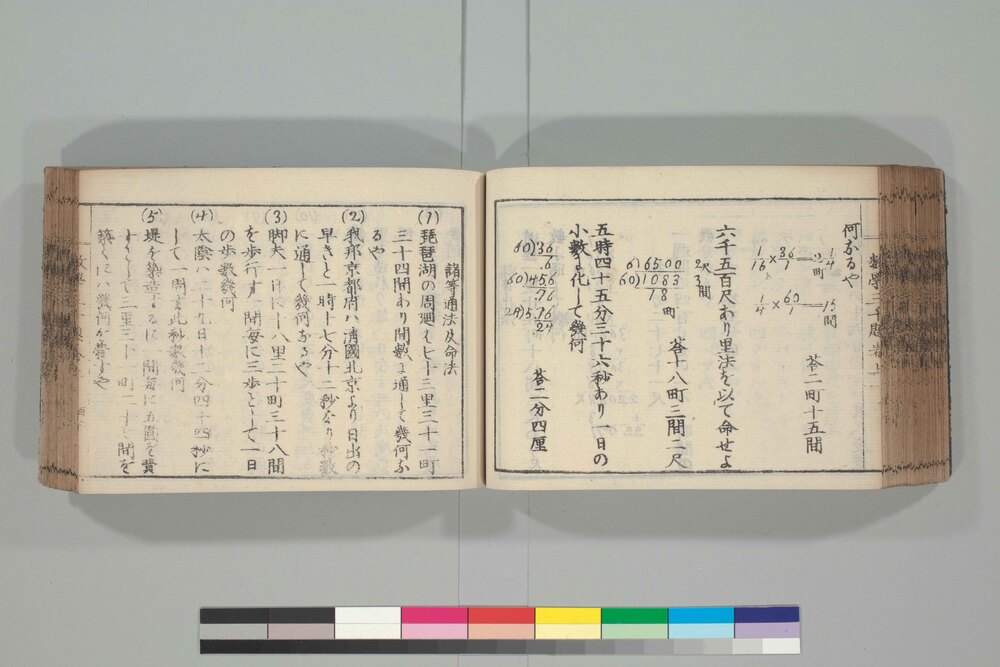 何なるや
1/16 × 36/1 = 2 1/4 町
1/4 × 60/1 = 15 間
答二町十五間
六千五百尺あり里法を以て命せよ
6)6500 2尺
60)1083 3間
18町
答十八町三間二尺
五時四十五分三十六秒あり一日の
小数に化して幾何
60)36
.6
60)45.6
.76
24)5.76
.24
答二分四厘
諸等通法及命法
(1) 琵琶湖の周廻ハ七十三里三十一町
三十四間あり間数に通して幾何な
るや
(2) 我邦京都府ハ清國北京より日出の
早きと一時十七分十二秒なり秒数
に通して幾何なるや
(3) 脚夫一日に十八里二十町三十八間
を歩行す一間毎に三歩として一日
の歩数幾何
(4) 太陰ハ二十九日十二分四十四秒に
して一周す此秒数幾何
(5) 堤を築造するに一間毎に五圓を費
すとして三里三十町二十間を
築くにハ幾何を費すや